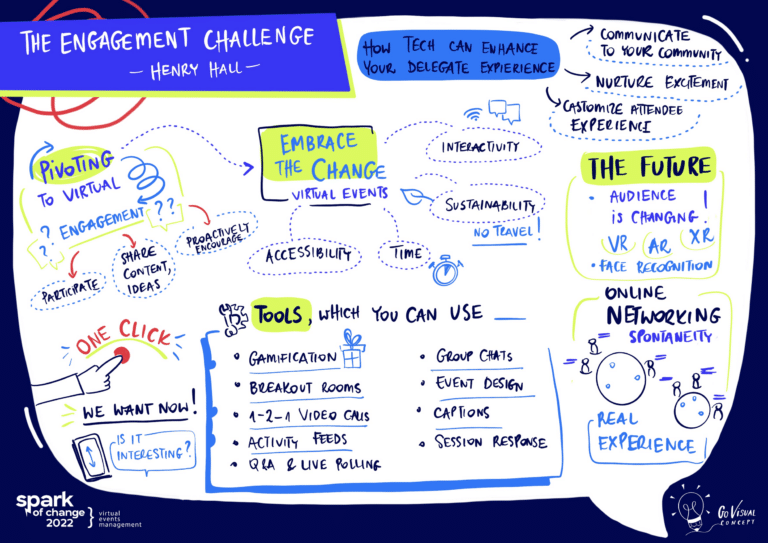 THE ENGAGEMENT CHALLENGE
- HENRY HALL -
HOW TECH CAN ENHANCE
YOUR DELEGATE EXPIERIENCE
COMMUNICATE
TO YOUR COMMUNITY
NURTURE EXCITEMENT
CASTOMIZE ATTENDEE
EXPERIENCE
PIVOTING
TO VIRTUAL
? ENGAGEMENT ??
?
PARTICIPATE
SHARE
CONTENT,
IDEAS
PROACTIVELY
ENCOURAGE
EMBRACE
THE CHANGE
VIRTUAL EVENTS
INTERACTIVITY
SUSTAINABILITY
NO TRAVEL!
ACCESSIBILITY
TIME
THE FUTURE
• AUDIENCE
IS CHANGING!
VR AR XR
• FACE RECOGNITION
ONE CLICK
WE WANT NOW!
IS IT
INTERESTING?
TOOLS, WHICH YOU CAN USE
• GAMIFICATION
• BREAKOUT ROOMS
• 1-2-1 VIDEO CALLS
• ACTIVITY FEEDS
• Q&A & LIVE POLLING
• GROUP CHATS
• EVENT DESIGN
• CAPTIONS
• SESSION RESPONSE
ONLINE
NETWORKING
SPONTANEITY
REAL
EXPERIENCE!
spark
of change
2022
virtual
events
management
GO VISUAL
CONCEPT